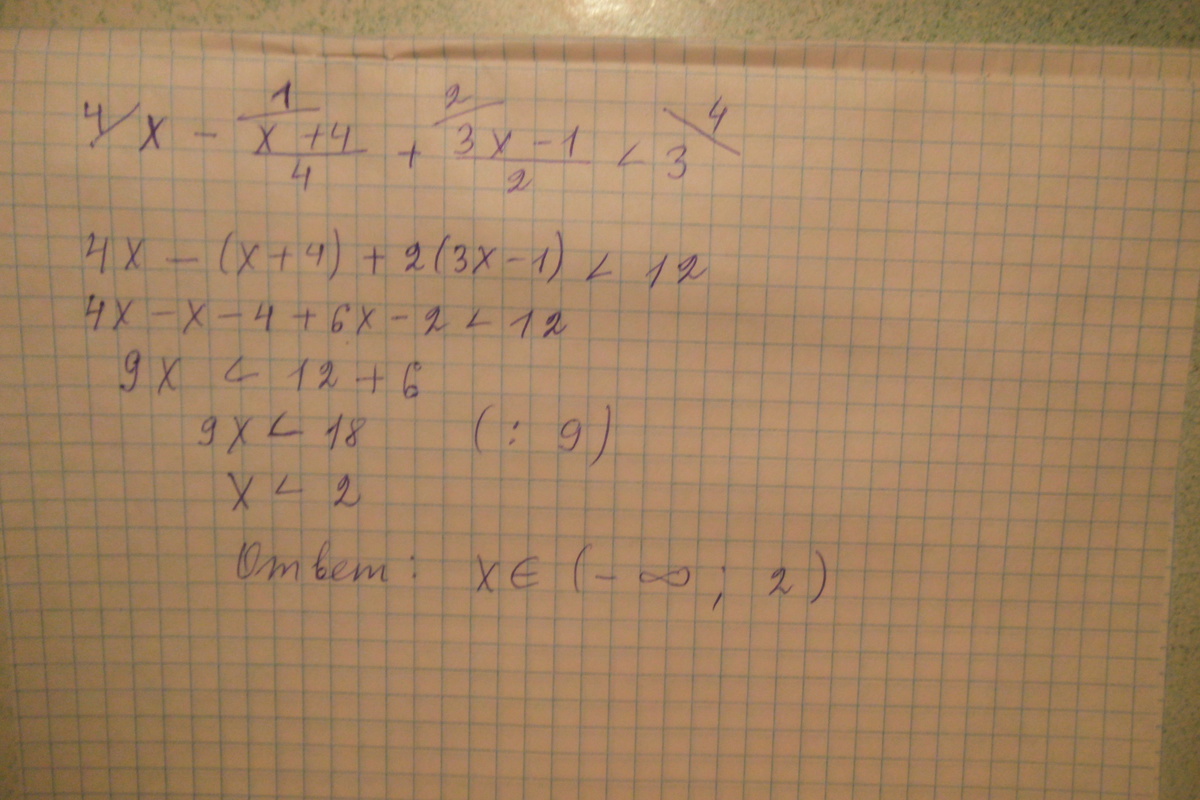 4/ x - 1/ (x + 4)/4 + 2/ (3x - 1)/2 < 3 \4
4x - (x + 4) + 2(3x - 1) < 12
4x - x - 4 + 6x - 2 < 12
9x < 12 + 6
9x < 18 (: 9)
x < 2
Ответ: x ∈ (- ∞ ; 2)